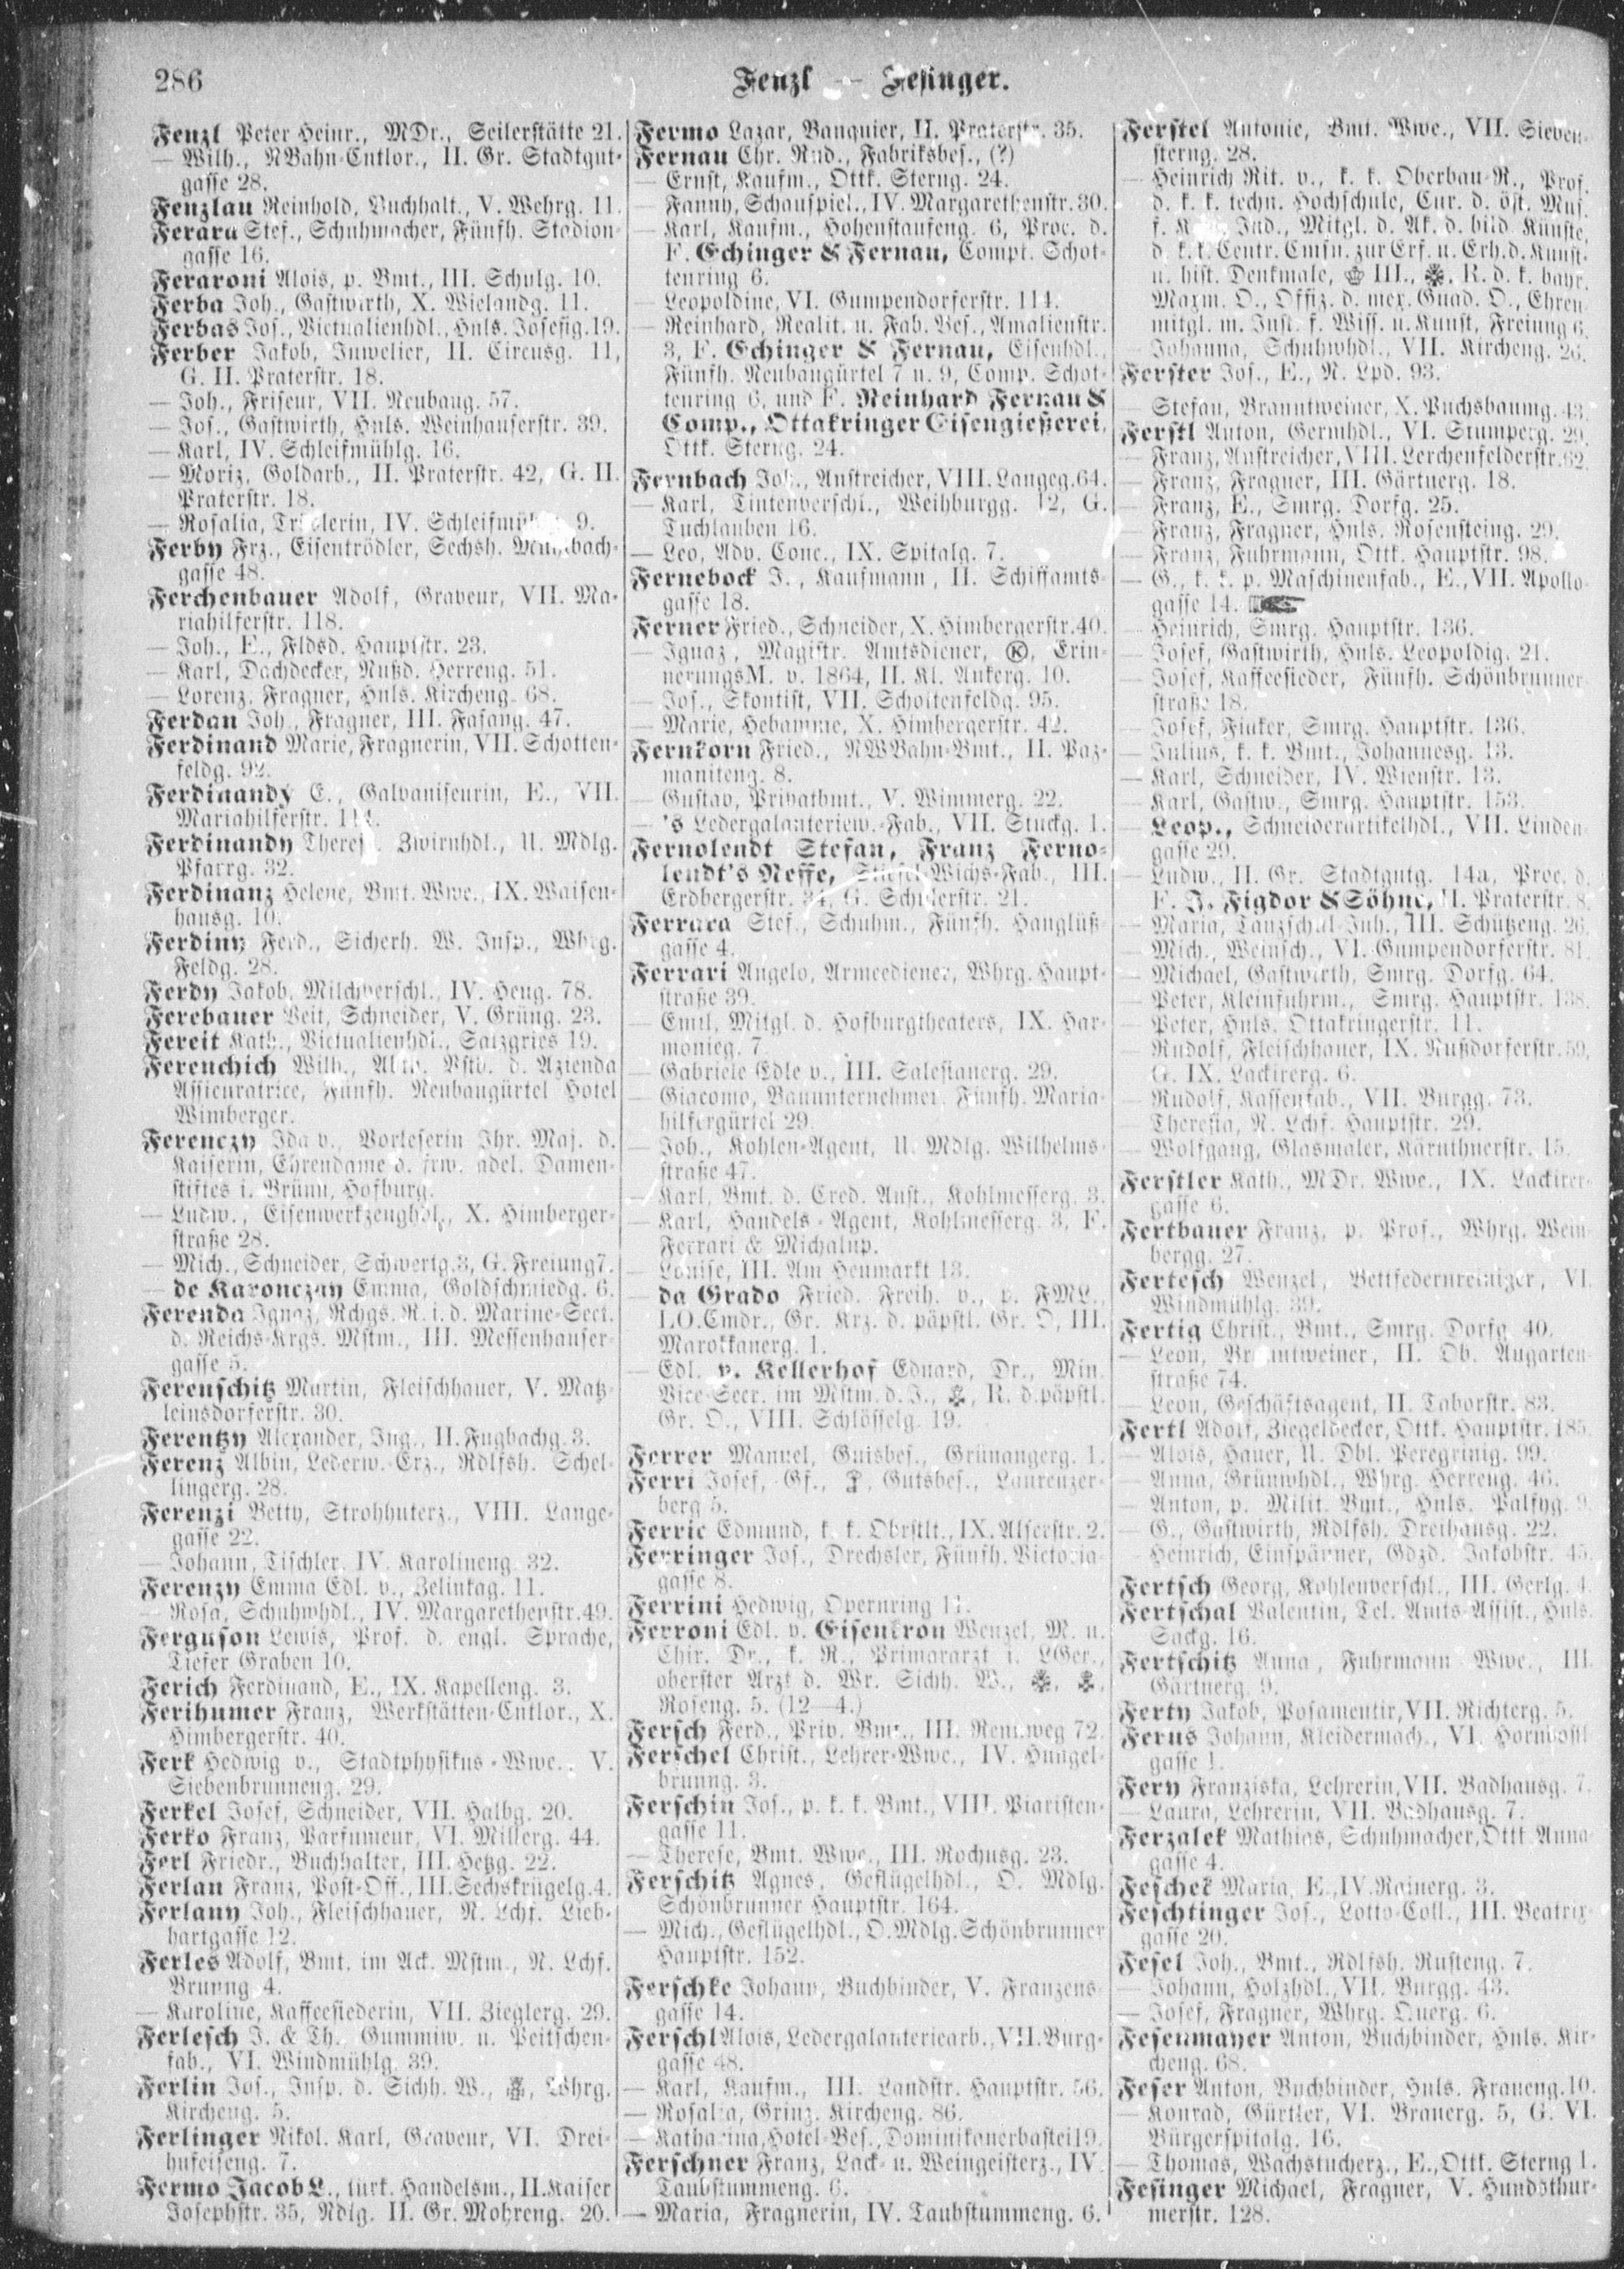 286
Fenzl — Fesinger.
Fenzl Peter Heinr., MDr., Seilerstätte 21.
— Wilh., NBahn-Cntlor., II. Gr. Stadtgut-
gasse 28.
Fenzlau Reinhold, Buchhalt., V. Wehrg. 11.
Ferara Stef., Schuhmacher, Fünfh. Stadion-
gasse 16.
Feraroni Alois, p. Bmt., III. Schulg. 10.
Ferba Joh., Gastwirth, X. Wielandg. 11.
Ferbas Jos., Victualienhdl., Hnls. Josefig. 19.
Ferber Jakob, Juwelier, II. Circusg. 11,
G. II. Praterstr. 18.
— Joh., Friseur, VII. Neubaug. 57.
— Jos., Gastwirth, Hnls. Weinhauserstr. 39.
— Karl, IV. Schleifmühlg. 16.
— Moriz, Goldarb., II. Praterstr. 42, G. II.
Praterstr. 18.
— Rosalia, IV. 9.
Ferby Frz., Eisentrödler, Sechsh.
gasse 48.
Ferchenbauer Adolf, Graveur, VII. Ma-
riahilferstr. 118.
— Joh., E., Fldsd. Hauptstr. 23.
— Karl, Dachdecker, Nußd. Herreng. 51.
— Lorenz, Fragner, Hnls. Kircheng. 68.
Ferdan Joh., Fragner, III. Fasang. 47.
Ferdinand Marie, Fragnerin, VII. Schotten-
feldg. 92.
Ferdinandy E., Galvaniseurin, E., VII.
Mariahilferstr.
Ferdinandy Zwirnhdl., U. Mdlg.
Pfarrg. 32.
Ferdinanz Helene, Bmt. Wwe., IX. Waisen-
hausg. 10.
Ferdiny Ferd., Sicherh. W. Insp., Whrg.
Feldg. 28.
Ferdy Jakob, Milchverschl., IV. Heug. 78.
Ferebauer Veit, Schneider, V. Grüng. 23.
Fereit Kath., Victualienhdl., Salzgries 19.
Ferenchich Wilh., d. Azienda
Assicuratrice, Fünfh. Neubaugürtel Hotel
Wimberger.
Ferenczy Ida v., Vorleserin Ihr. Maj. d.
Kaiserin, Ehrendame d. frw. adel. Damen-
stiftes i. Brünn, Hofburg.
— Ludw., Eisenwerkzeughdl., X. Himberger-
straße 28.
— Mich., Schneider, Schwertg. 3, G. Freiung 7.
— de Karonczay Emma, Goldschmiedg. 6.
Ferenda Ignaz, Rchgs. R. i. d. Marine-Sect.
d. Reichs-Krgs. Mstm., III. Messenhauser-
gasse 5.
Ferenschitz Martin, Fleischhauer, V. Matz-
leinsdorferstr. 30.
Ferentzy Alexander, Ing., II. Fugbachg. 3.
Ferenz Albin, Lederw.-Erz., Rdlfsh. Schel-
lingerg. 28.
Ferenzi Betty, Strohhuterz., VIII. Lange-
gasse 22.
— Johann, Tischler, IV. Karolineng. 32.
Ferenzy Emma Edl. v., Zelinkag. 11.
— Rosa, Schuhwhdl., IV. Margarethenstr. 49.
Ferguson Lewis, Prof. d. engl. Sprache,
Tiefer Graben 10.
Ferich Ferdinand, E., IX. Kapelleng. 3.
Ferihumer Franz, Werkstätten-Cntlor., X.
Himbergerstr. 40.
Ferk Hedwig v., Stadtphysikus-Wwe., V.
Siebenbrunneng. 29.
Ferkel Josef, Schneider, VII. Halbg. 20.
Ferko Franz, Parfumeur, VI. Millerg. 44.
Ferl Friedr., Buchhalter, III. Hetzg. 22.
Ferlan Franz, Post-Off., III. Sechskrügelg. 4.
Ferlany Joh., Fleischhauer, N. Lchf. Lieb-
hartgasse 12.
Ferles Adolf, Bmt. im Ack. Mstm., N. Lchf.
Brunng. 4.
— Karoline, Kaffeesiederin, VII. Zieglerg. 29.
Ferlesch J. & Th. Gummiw. u. Peitschen-
fab., VI. Windmühlg. 39.
Ferlin Jos., Insp. d. Sichh. W., Whrg.
Kircheng. 5.
Ferlinger Nikol. Karl, Graveur, VI. Drei-
hufeiseng. 7.
Fermo Jacob L., türk. Handelsm., II. Kaiser
Josephstr. 35, Ndlg. II. Gr. Mohreng. 20.
Fermo Lazar, Banquier, II. Praterstr. 35.
Fernau Chr. Rud., Fabriksbes., (?)
— Ernst, Kaufm., Ottk. Sterng. 24.
— Fanny, Schauspiel., IV. Margarethenstr. 30.
— Karl, Kaufm., Hohenstaufeng. 6, Proc. d.
F. Echinger & Fernau, Compt. Schot-
tenring 6.
— Leopoldine, VI. Gumpendorferstr. 114.
— Reinhard, Realit. u. Fab. Bes., Amalienstr.
3, F. Echinger & Fernau, Eisenhdl.,
Fünfh. Neubaugürtel 7 u. 9, Comp. Schot-
tenring 6, und F. Reinhard Fernau &
Comp., Ottakringer Eisengießerei,
Ottk. Sterng. 24.
Fernbach Joh., Anstreicher, VIII. Langeg. 64.
— Karl, Tintenverschl., Weihburgg. 12, G.
Tuchlauben 16.
— Leo, Adv. Conc., IX. Spitalg. 7.
Fernebock J., Kaufmann, II. Schiffamts-
gasse 18.
Ferner Fried., Schneider, X. Himbergerstr. 40.
— Ignaz, Magistr. Amtsdiener, Ⓚ, Erin-
nerungsM. v. 1864, II. Kl. Ankerg. 10.
— Jos., Skontist, VII. Schottenfeldg. 95.
— Marie, Hebamme, X. Himbergerstr. 42.
Fernkorn Fried., NWBahn-Bmt., II. Paz-
maniteng. 8.
— Gustav, Privatbmt., V. Wimmerg. 22.
— 's Ledergalanteriew.-Fab., VII. Stuckg. 1.
Fernolendt Stefan, Franz Ferno-
lendt's Neffe, Stiefel-Wichs-Fab., III.
Erdbergerstr. 34, G. Schulerstr. 21.
Ferrara Stef., Schuhm., Fünfh. Hanglüß-
gasse 4.
Ferrari Angelo, Armeediener, Whrg. Haupt-
straße 39.
— Emil, Mitgl. d. Hofburgtheaters, IX. Har-
monieg. 7.
— Gabriele Edle v., III. Salesianerg. 29.
— Giacomo, Bauunternehmer, Fünfh. Maria-
hilfergürtel 29.
— Joh., Kohlen-Agent, U. Mdlg. Wilhelms-
straße 47.
— Karl, Bmt. d. Cred. Anst., Kohlmesserg. 3.
— Karl, Handels-Agent, Kohlmesserg. 3, F.
Ferrari & Michalup.
— Louise, III. Am Heumarkt 13.
— da Grado Fried. Freih. v., p. FML.,
LO.Cmdr., Gr. Krz. d. päpstl. Gr. O., III.
Marokkanerg. 1.
— Edl. v. Kellerhof Eduard, Dr., Min.
Vice-Secr. im Mstm. d. J., R. d. päpstl.
Gr. O., VIII. Schlösselg. 19.
Ferrer Manuel, Gutsbes., Grünangerg. 1.
Ferri Josef, Gf., Gutsbes., Laurenzer-
berg 5.
Ferric Edmund, k. k. Obrstlt., IX. Alserstr. 2.
Ferringer Jos., Drechsler, Fünfh. Victoria-
gasse 8.
Ferrini Hedwig, Opernring 11.
Ferroni Edl. v. Eisenkron Wenzel, M. u.
Chir. Dr., k. R., Primararzt i. LGer.,
oberster Arzt d. Wr. Sichh. W.,
Roseng. 5. (12—4.)
Fersch Ferd., Priv. Bmt., III. Rennweg 72.
Ferschel Christ., Lehrer-Wwe., IV. Hungel-
brunng. 3.
Ferschin Jos., p. k. k. Bmt., VIII. Piaristen-
gasse 11.
— Therese, Bmt. Wwe., III. Rochusg. 23.
Ferschitz Agnes, Geflügelhdl., O. Mdlg.
Schönbrunner Hauptstr. 164.
— Mich., Geflügelhdl., O. Mdlg. Schönbrunner
Hauptstr. 152.
Ferschke Johann, Buchbinder, V. Franzens-
gasse 14.
Ferschl Alois, Ledergalanteriearb., VII. Burg-
gasse 48.
— Karl, Kaufm., III. Landstr. Hauptstr. 56.
— Rosalia, Grinz. Kircheng. 86.
— Katharina, Hotel-Bes., Dominikanerbastei 19.
Ferschner Franz, Lack- u. Weingeisterz., IV.
Taubstummeng. 6.
— Maria, Fragnerin, IV. Taubstummeng. 6.
Ferstel Antonie, Bmt. Wwe., VII. Sieben-
sterng. 28.
— Heinrich Rit. v., k. k. Oberbau-R., Prof.
d. k. k. techn. Hochschule, Cur. d. öst. Mus.
f. K. u. Ind., Mitgl. d. Ak. d. bild. Künste,
d. k. k. Centr. Cmsn. zur Erf. u. Erh. d. Kunst-
u. hist. Denkmale, III., R. d. k. bayr.
Maxm. O., Offiz. d. mex. Guad. O., Ehren-
mitgl. m. Inst. f. Wiss. u. Kunst, Freiung 6.
— Johanna, Schuhwhdl., VII. Kircheng. 26.
Ferster Jos., E., N. Lpd. 93.
— Stefan, Branntweiner, X. Puchsbaumg. 43.
Ferstl Anton, Germhdl., VI. Stumperg. 29.
— Franz, Anstreicher, VIII. Lerchenfelderstr. 62.
— Franz, Fragner, III. Gärtnerg. 18.
— Franz, E., Smrg. Dorfg. 25.
— Franz, Fragner, Hnls. Rosensteing. 29.
— Franz, Fuhrmann, Ottk. Hauptstr. 98.
— G., k. k. p. Maschinenfab., E., VII. Apollo-
gasse 14.
— Heinrich, Smrg. Hauptstr. 136.
— Josef, Gastwirth, Hnls. Leopoldig. 21.
— Josef, Kaffeesieder, Fünfh. Schönbrunner-
straße 18.
— Josef, Fiaker, Smrg. Hauptstr. 136.
— Julius, k. k. Bmt., Johannesg. 13.
— Karl, Schneider, IV. Wienstr. 13.
— Karl, Gastw., Smrg. Hauptstr. 153.
— Leop., Schneiderartikelhdl., VII. Linden-
gasse 29.
— Ludw., II. Gr. Stadtgutg. 14a, Proc. d.
F. J. Figdor & Söhne, II. Praterstr. 8.
— Maria, Tanzschul-Inh., III. Schützeng. 26.
— Mich., Weinsch., VI. Gumpendorferstr. 81.
— Michael, Gastwirth, Smrg. Dorfg. 64.
— Peter, Kleinfuhrm., Smrg. Hauptstr. 138.
— Peter, Hnls. Ottakringerstr. 11.
— Rudolf, Fleischhauer, IX. Nußdorferstr. 59,
G. IX. Lackirerg. 6.
— Rudolf, Kassenfab., VII. Burgg. 73.
— Theresia, N. Lchf. Hauptstr. 29.
— Wolfgang, Glasmaler, Kärnthnerstr. 15.
Ferstler Kath., MDr. Wwe., IX. Lackirer-
gasse 6.
Fertbauer Franz, p. Prof., Whrg. Wein-
bergg. 27.
Fertesch Wenzel, Bettfedernreiniger, VI.
Windmühlg. 39.
Fertig Christ., Bmt., Smrg. Dorfg. 40.
— Leon, Branntweiner, II. Ob. Augarten-
straße 74.
— Leon, Geschäftsagent, II. Taborstr. 83.
Fertl Adolf, Ziegeldecker, Ottk. Hauptstr. 185.
— Alois, Hauer, U. Dbl. Peregrinig. 99.
— Anna, Grünwhdl., Whrg. Herreng. 46.
— Anton, p. Milit. Bmt., Hnls. Palfyg. 9.
— G., Gastwirth, Rdlfsh. Dreihausg. 22.
— Heinrich, Einspänner, Gdzd. Jakobstr. 45.
Fertsch Georg, Kohlenverschl., III. Gerlg. 4.
Fertschal Valentin, Tel. Amts-Assist., Hnls.
Sackg. 16.
Fertschitz Anna, Fuhrmann Wwe., III.
Gärtnerg. 9.
Ferty Jakob, Posamentir, VII. Richterg. 5.
Ferus Johann, Kleidermach., VI. Hornbostl-
gasse 1.
Fery Franziska, Lehrerin, VII. Badhausg. 7.
— Laura, Lehrerin, VII. Badhausg. 7.
Ferzalek Mathias, Schuhmacher, Ottk. Anna-
gasse 4.
Feschek Maria, E., IV. Rainerg. 3.
Feschtinger Jos., Lotto-Coll., III. Beatrix-
gasse 20.
Fesel Joh., Bmt., Rdlfsh. Rusteng. 7.
— Johann, Holzhdl., VII. Burgg. 43.
— Josef, Fragner, Whrg. Querg. 6.
Fesenmayer Anton, Buchbinder, Hnls. Kir-
cheng. 68.
Feser Anton, Buchbinder, Hnls. Fraueng. 10.
— Konrad, Gürtler, VI. Brauerg. 5, G. VI.
Bürgerspitalg. 16.
— Thomas, Wachstucherz., E., Ottk. Sterng 1.
Fesinger Michael, Fragner, V. Hundsthur-
merstr. 128.